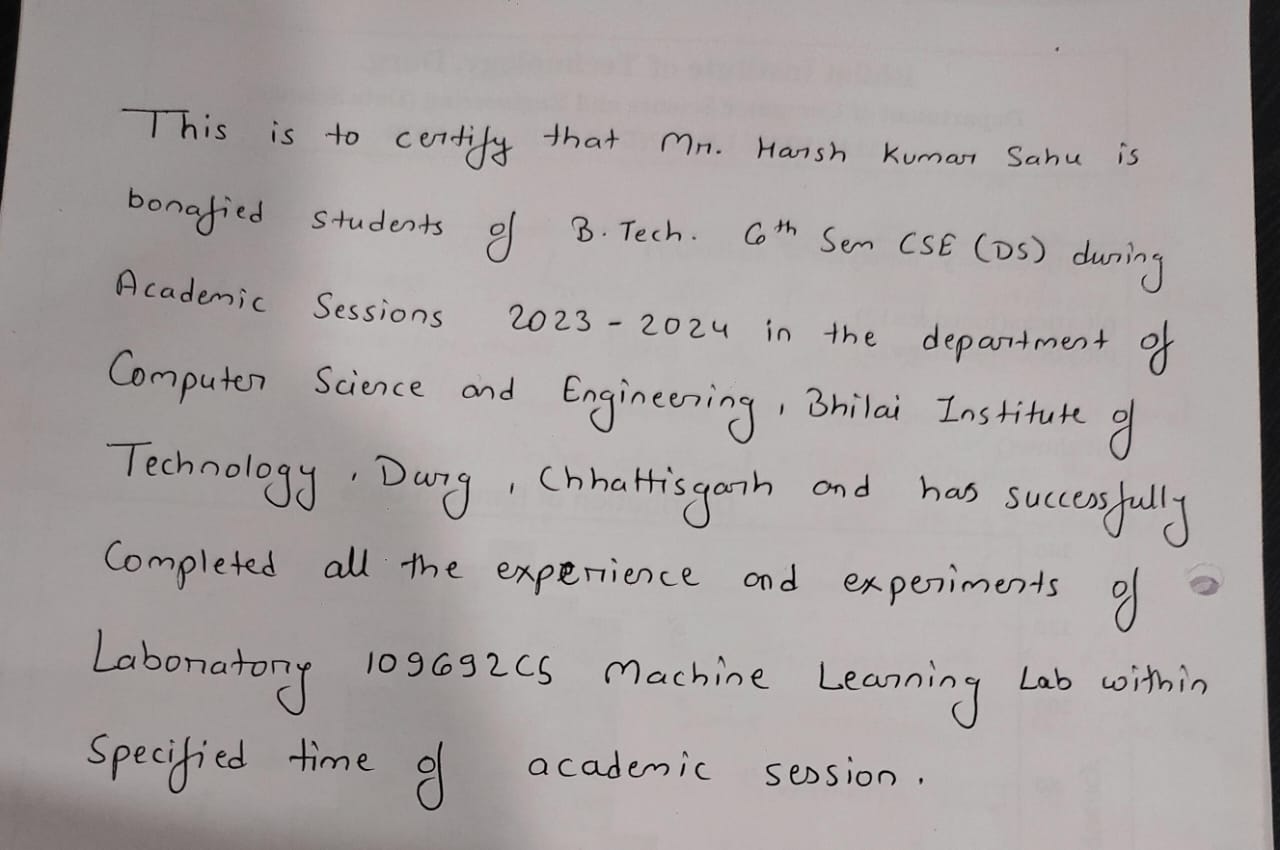 This is to certify that Mr. Harsh Kumar Sahu is
bonafied students of B.Tech. 6th Sem CSE (DS) during
Academic Sessions 2023-2024 in the department of
Computer Science and Engineering, Bhilai Institute of
Technology, Durg, Chhattisgarh and has successfully
Completed all the experience and experiments of
Laboratory 109692CS Machine Learning Lab within
Specified time of academic session.